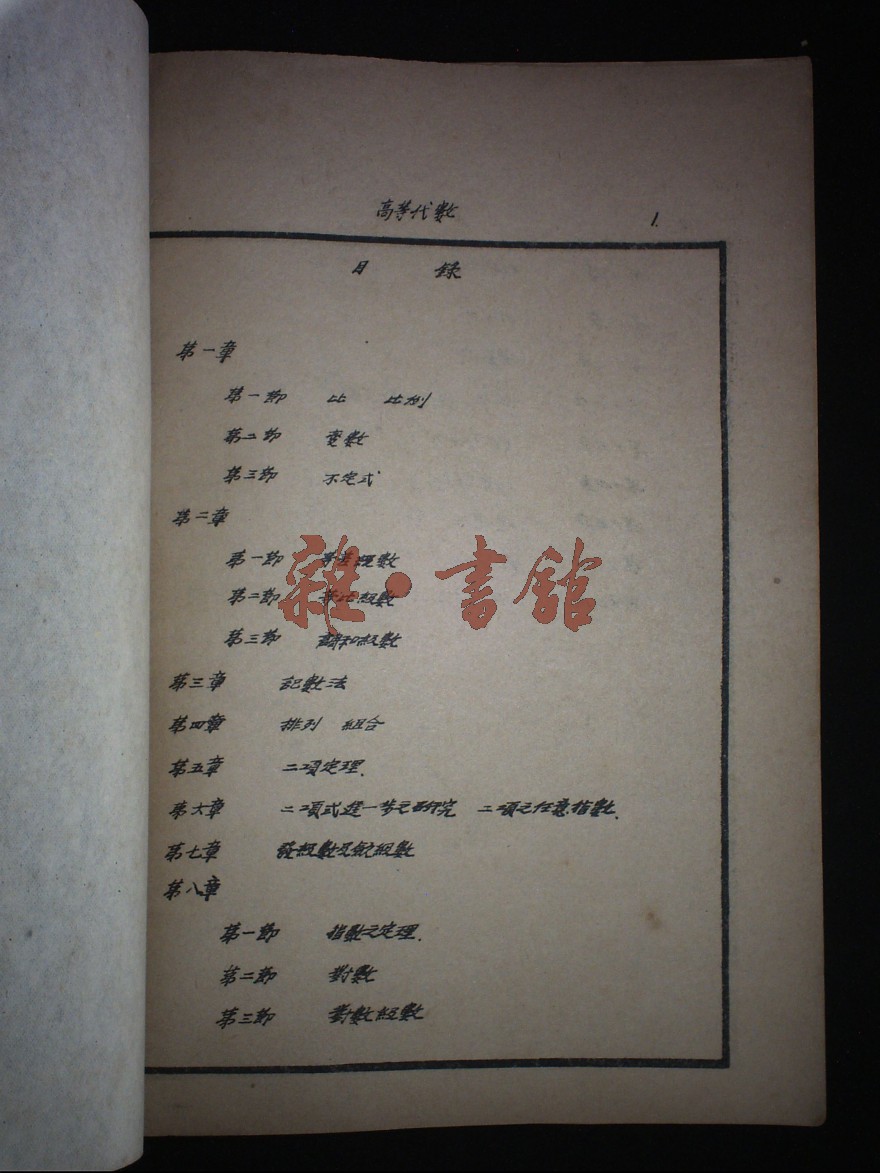 高等代數 1.
目 錄
第一章
第一節 比 比例
第二節 變數
第三節 不定式
第二章
第一節 等差級數
第二節 等比級數
第三節 調和級數
雜·書館
第三章 記數法
第四章 排列 組合
第五章 二項定理.
第六章 二項式進一步之研究 二項之任意指數.
第七章 發級數及斂級數
第八章
第一節 指數之定理.
第二節 對數
第三節 對數級數